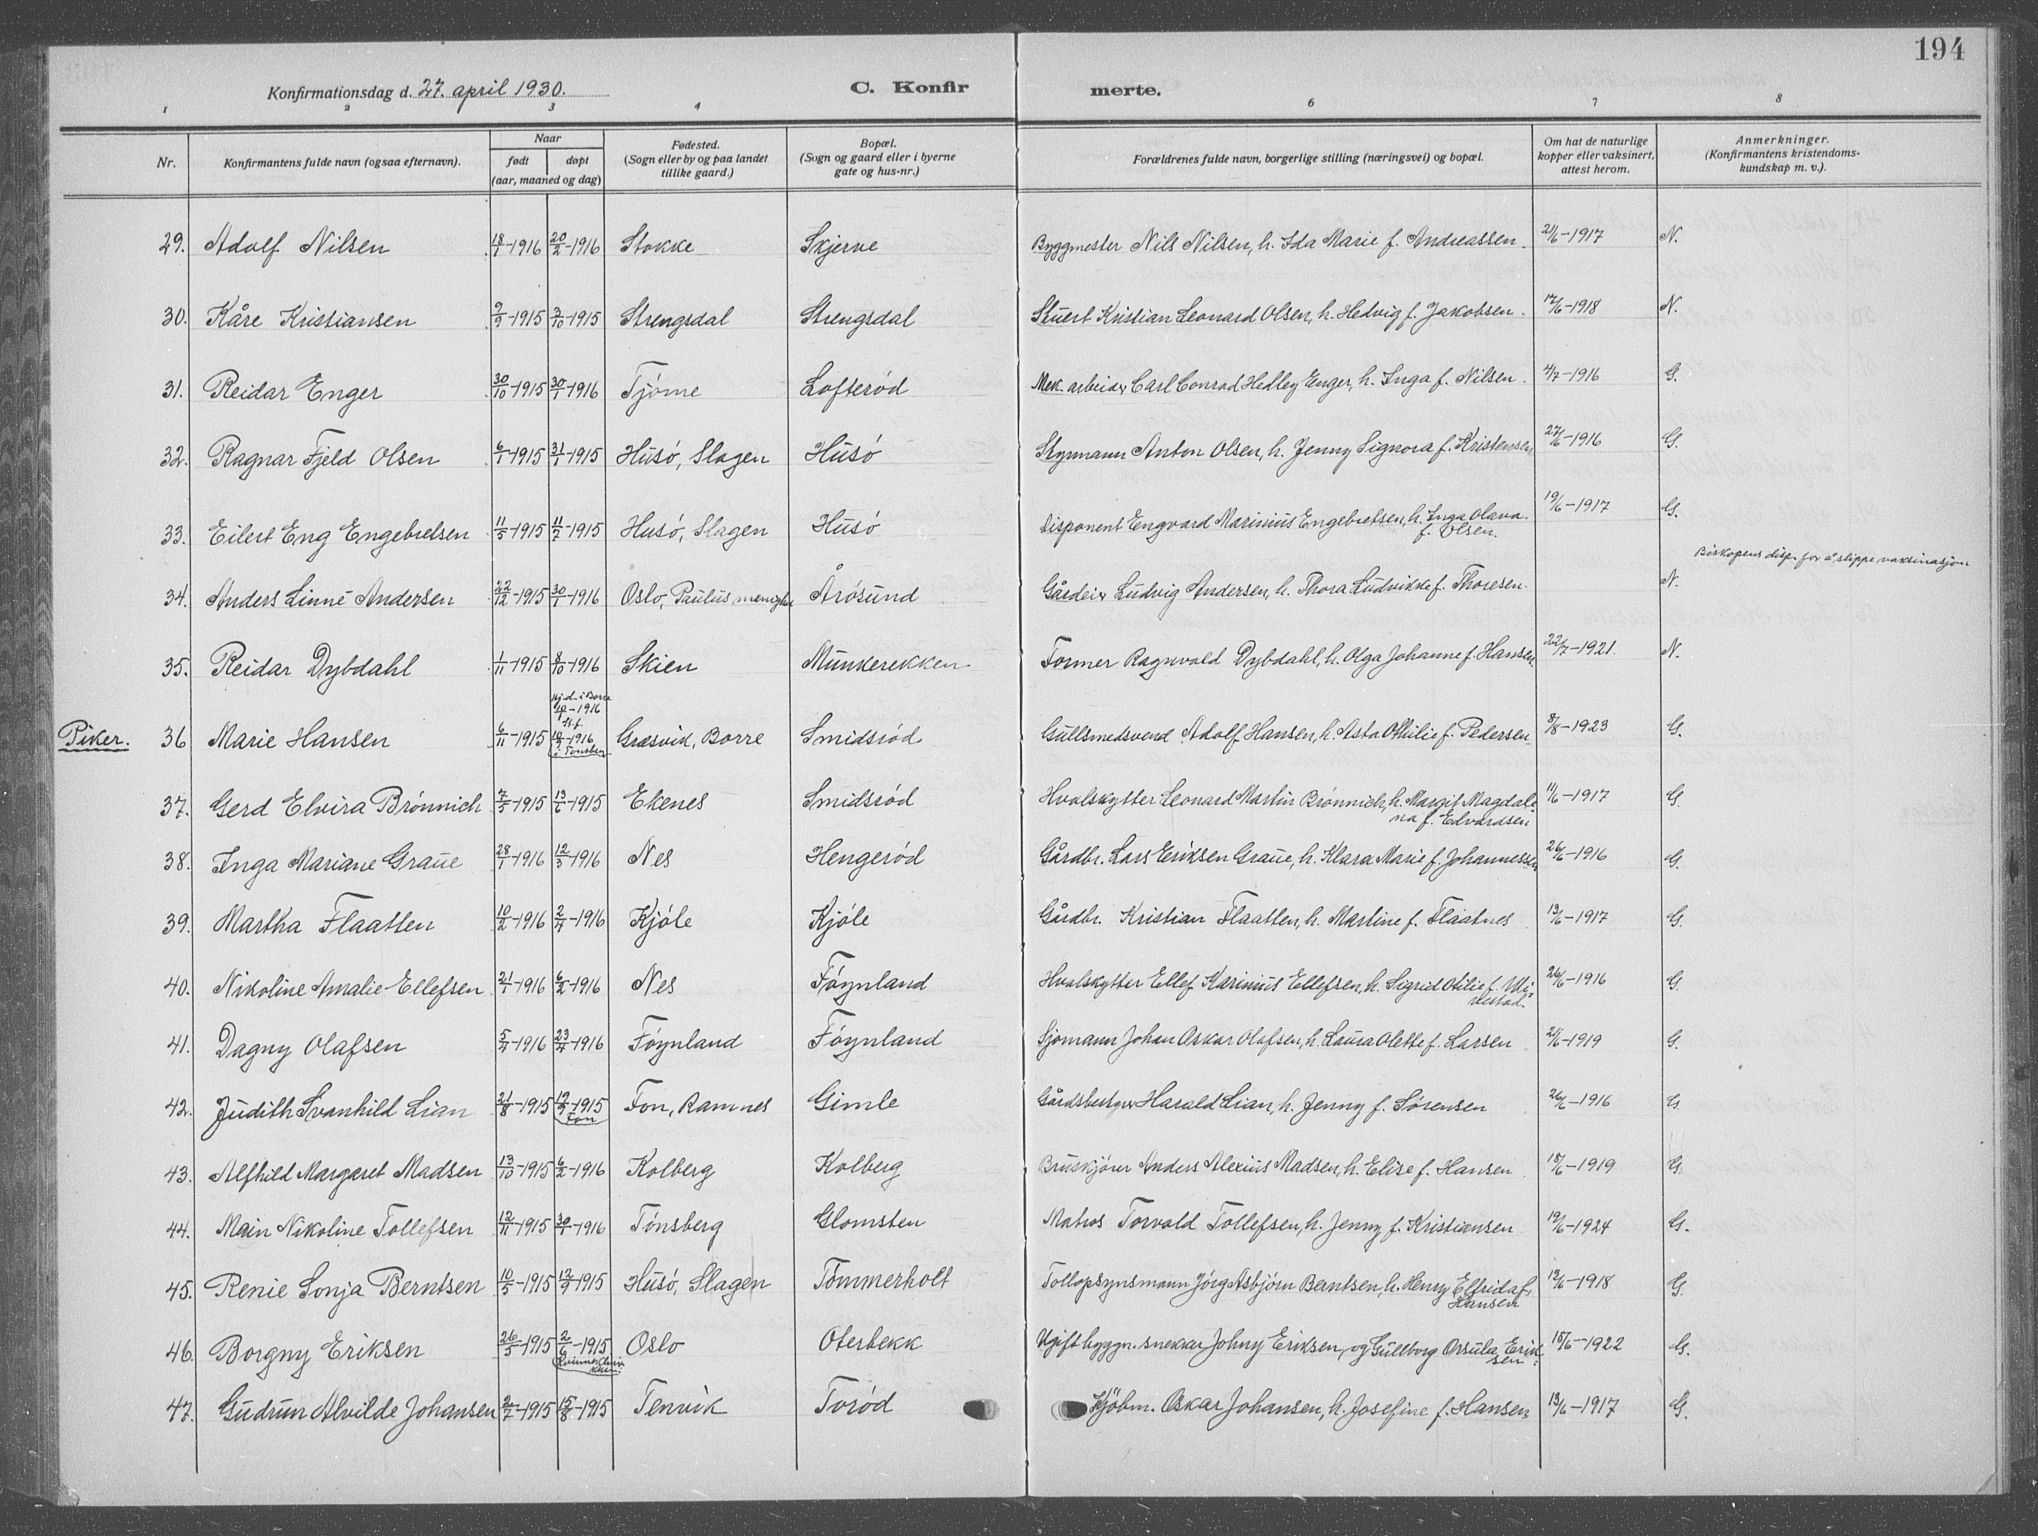 194
Konfirmationsdag d. 27. april 1930.
C. Konfirmerte.
1 2 3 4 6 7 8
Nr.
Konfirmantens fulde navn (ogsaa efternavn).
Naar
født døpt
(aar, maaned og dag)
Fødested.
(Sogn eller by og paa landet
tillike gaard.)
Bopæl.
(Sogn og gaard eller i byerne
gate og hus-nr.)
Forældrenes fulde navn, borgerlige stilling (næringsvei) og bopæl.
Om hat de naturlige
kopper eller vaksinert,
attest herom.
Anmerkninger.
(Konfirmantens kristendoms-
kundskap m. v.).
29. Adolf Nilsen 18/1-1916 20/2-1916 Stokke Skjerve Byggmester Nils Nilsen, h. Ida Marie f. Andreassen. 21/6-1917 N.
30. Kåre Kristiansen 9/9-1915 3/10-1915 Strengsdal Strengsdal Stuert Kristian Leonard Olsen, h. Hedvig f. Jakobsen. 12/6-1918 N.
31. Reidar Enger 30/10-1915 30/1-1916 Tjöme Lofteröd Mek. arbeider Carl Conrad Hedley Enger, h. Inga f. Nilsen. 4/7-1916 G.
32. Ragnar Fjeld Olsen 6/1-1915 31/1-1915 Husö, Slagen Husö Styrmann Anton Olsen, h. Jenny Signora f. Kristensen 27/6-1916 G.
33. Eilert Eng Engebretsen 11/5-1915 11/7-1915 Husö, Slagen Husö Disponent Engvard Marinius Engebretsen, h. Inga Olava
f. Olsen. 19/6-1917 G.
Biskopens disp. for å slippe vaksinasjon
34. Anders Linné Andersen 22/12-1915 30/1-1916 Oslo, Paulus menighet Årösund Gårdeier Ludvig Andersen, h. Thora Ludvikke f. Thoresen. N.
35. Reidar Dybdahl 1/11-1915 8/10-1916 Skien Munkerekken Former Ragnvald Dybdahl, h. Olga Johanne f. Hansen 22/7-1921. N.
Hj.d. i Borre
-1916
St.f.
Piker. 36 Marie Hansen 6/11-1915 -1916 Græsvik, Borre Smidsröd Gullsmedsvend Adolf Hansen, h. Asta Othilie f. Pedersen 8/8-1923 G.
i Tönsberg
37. Gerd Elvira Brönnich 7/5-1915 13/6-1915 Ekenes Smidsröd Hvalskytter Leonard Martin Brönnich, h. Margit Magdale
na f. Edvardsen 11/6-1917 G.
38. Inga Mariane Graue 28/1-1916 12/3-1916 Nes Hengeröd Gårdbr. Lars Eriksen Graue, h. Klara Marie f. Johannessen 26/6-1916 G.
39. Martha Flaatten 10/2-1916 2/4-1916 Kjöle Kjöle Gårdbr. Kristian Flaatten, h. Martine f. Flaatnes 13/6-1917 G.
40. Nikoline Amalie Ellefsen 21/1-1916 6/2-1916 Nes Föynland Hvalskytter Ellef Karinius Ellefsen, h. Sigrid Otilie f.
26/6-1916 G.
41. Dagny Olafsen 5/4-1916 23/4-1916 Föynland Föynland Sjömann Johan Oskar Olafsen, h. Laura Olette f. Larsen 21/6-1919 G.
42. Judith Svanhild Lian 21/8-1915 12/9-1915 Fon, Ramnes Gimle Gårdsbestyrer Harald Lian, h. Jenny f. Sörensen 26/6-1916 G
Fon
43. Alfhild Margaret Madsen 13/10-1915 6/2-1916 Kolberg Kolberg Bruskjörer Anders Alexius Madsen, h. Elise f. Hansen 18/6-1919 G
44. Main Nikoline Tollefsen 12/11-1915 30/1-1916 Tönsberg Glomsten Matros Torvald Tollefsen, h. Jenny f. Kristiansen 19/6-1924 G.
45. Renie Sonja Berntsen 10/5-1915 12/9-1915 Husö, Slagen Tömmerholt Tollopsynsmann Jörg Asbjörn Berntsen, h. Henny Elfrida f.
Hansen 12/6-1918 G.
46. Borgny Eriksen 26/5-1915 2/6-1915 Oslo Oterbekk Ugift byggn. snekker Johny Eriksen, og Gullborg Orsula Erik
sen 15/6-1922 G.
47. Gudrun Alvilde Johansen 2/7-1915 15/8-1915 Tenvik Toröd Kjöbm. Oskar Johansen, h. Josefine f. Hansen 13/6-1917 G.